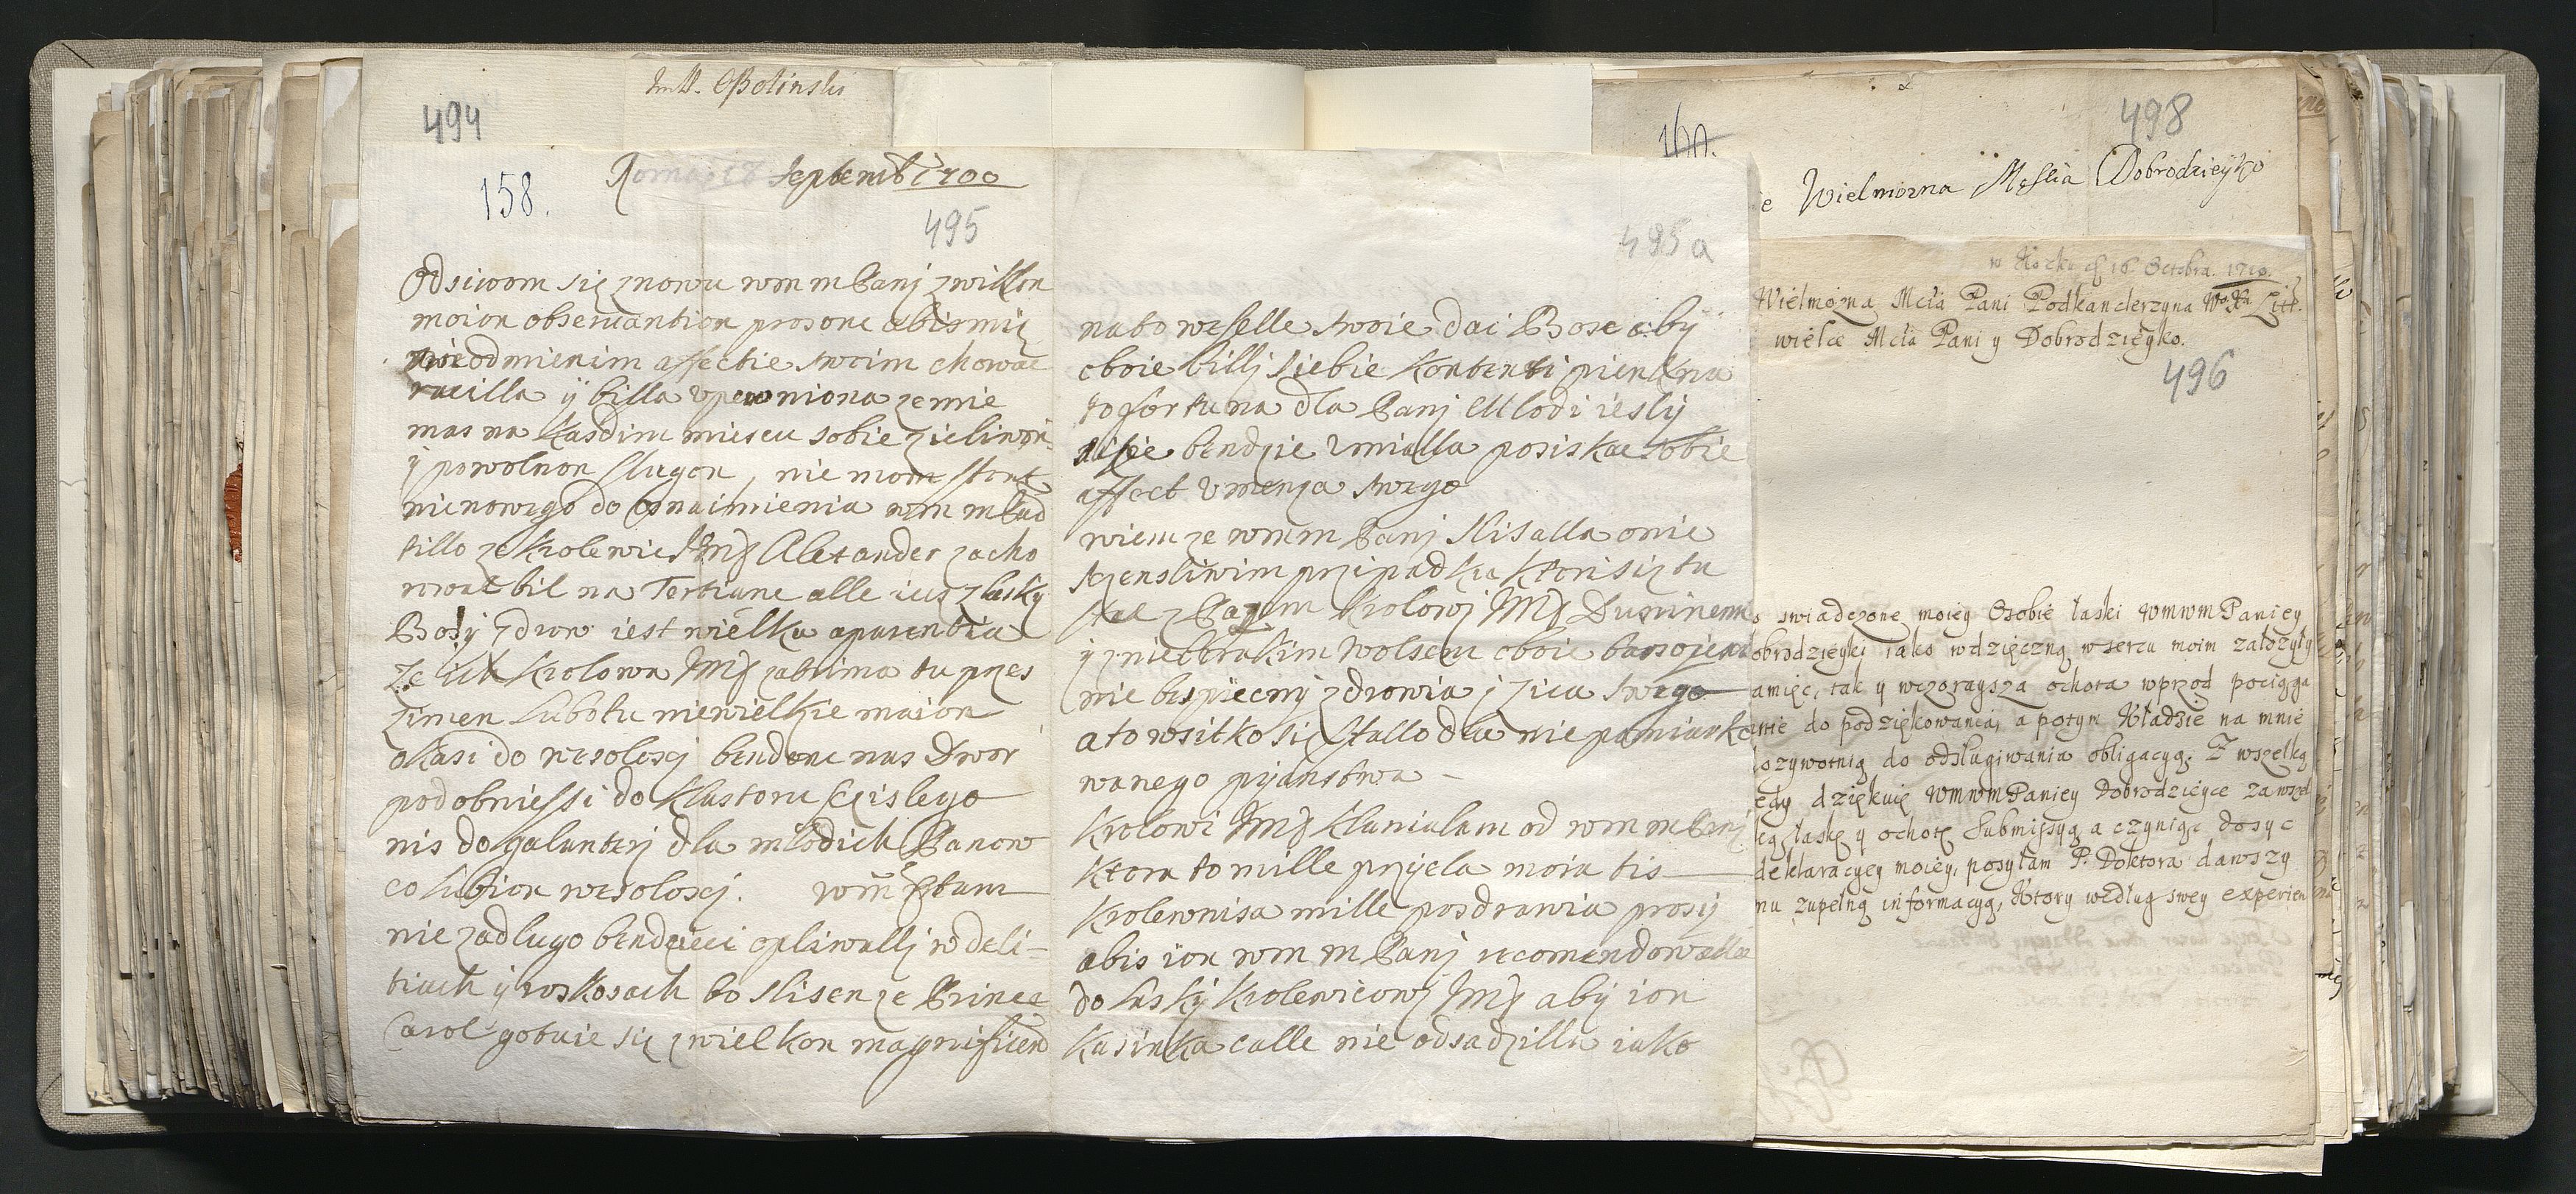 494
158.
Septemb 1700
495
Odsiwom się znowu wm m Panj z wilkon
moion observantion prosonc abismię
nieodmienim affectie swoim chowac
racilla ÿ billa upewniona ze mie
mas na kasdim miescu sobie zicliwon
ÿ powolnon slugon, nie mom
nienowego do osnaimienia wm m
tillo ze krolewic JMſ Alexander zacho
rowal bil na Tertiane alle ius z laski
Bosÿ zdrow iest wielka aparentia
ze ich krolowa JMſ zatrima tu przes
zimen lubo tu niewielkie maion
okasi do wesolesci bendonc nas Dwor
podobniessi do klastoru scislego
nis do galanterj dla mlodich Panow
co lubion wesolosci. wm
nie zadlugo bendzieci opliwallj w deli-
tiach ÿ roskosach bo slisen ze Prince
Carol gotuie się z wielkon magnificen
495a
na to weselle swoie dai Bose abÿ
oboie billj siebie kontenti pienkna
to fortuna dla Panj Mlodi ieslÿ
bendzie umialla posiskac sobie
affect u menza swego
wiem ze wm m Panj slisalla o nie
sczensliwim przipadku ktori się tu
stal z Pazem krolowÿ JMſ Duninem
ÿ z nieborakim Wolsem oboie
nie bespiecnÿ zdrowia j zica swego
a to wsitko się stallo dla nie pamiarko
wanego pijanstwa -
krolowi JMſ klanialam od wm m Panj
ktora to mille przijela moia tis
krolewnisa mille posdrawia prosÿ
abis ion wm m Panj recomendowalla
do laskÿ krolewicowÿ JMſ abÿ ion
kasinka calle nie odsadzilla iako
498
Wielmozna Mosċia Dobrodzieÿko
16 Octobra.
Wielmozna Mcia Pani Podkanclerzyna W° Xa Litt.
wielce Mcia Pani y Dobrodzieyko.
496
swiadczone moiey Osobie łaski WMWM Paniey
obrodzieyki iako wdzięczną w sercu moim założyły
amięc, tak y wczoraysza ochota wprzod pociąga
do podziękowania, a potym kładzie na mnie
ozywotnią do odsługiwania obligacyą. Z wszelką
edy dziękuię WMWM Paniey Dobrodzieyce za wszel
ką łaskę y ochotę Submissyą a czyniąc dosyc
deklaracyey moiey, posyłam P. Doktora dawszy
mu zupełną informacyą, ktory według swey experien